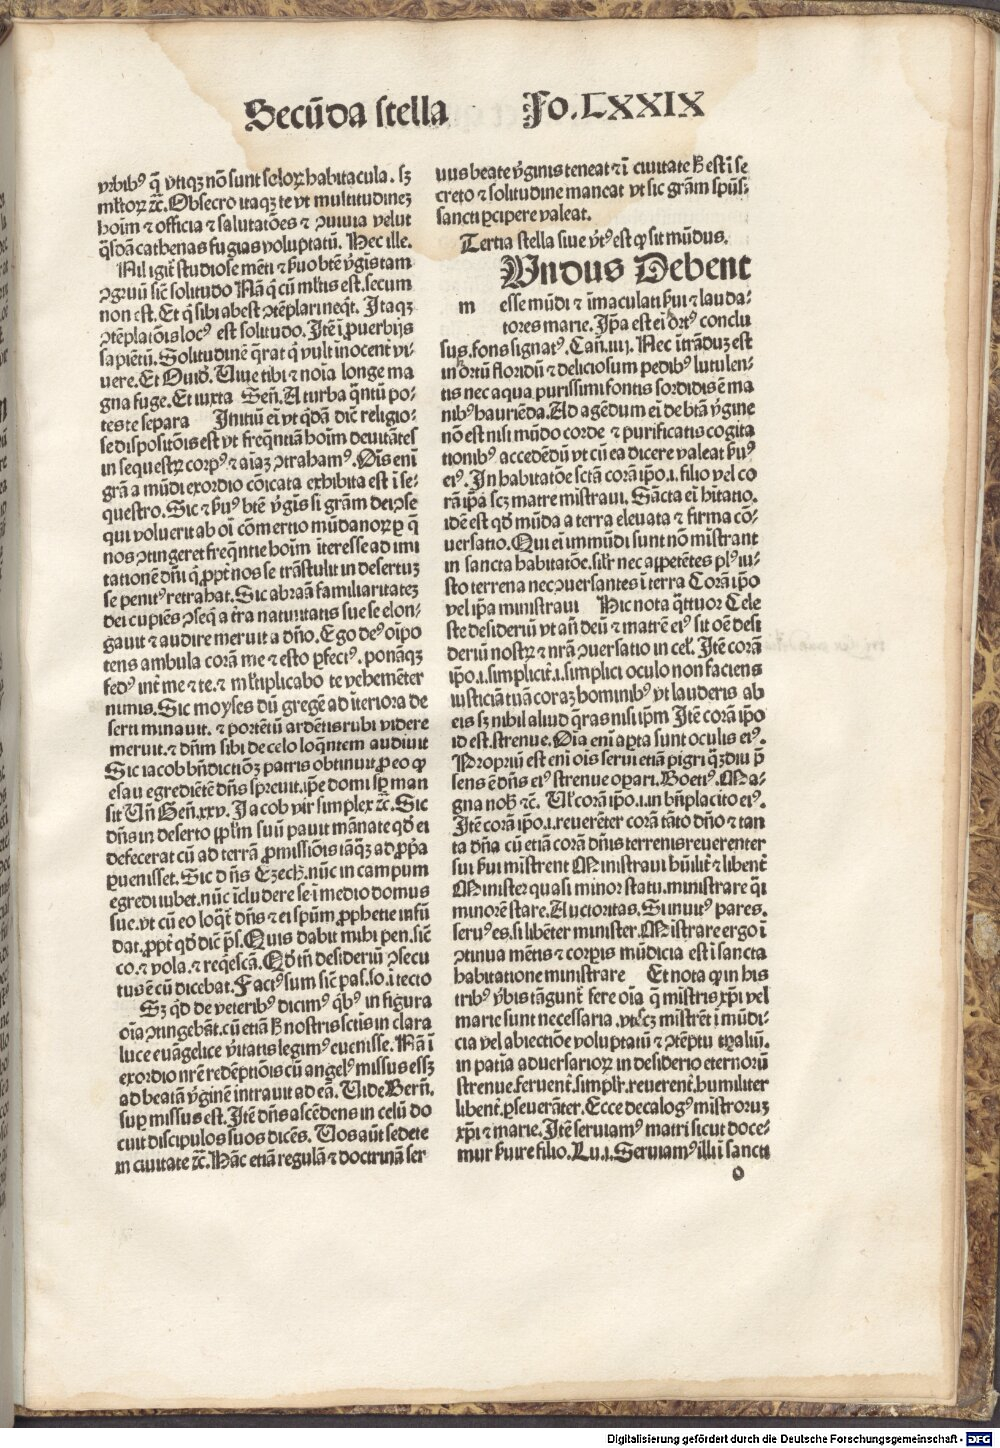 Secūda stella Fo.LXXIX
vrbibꝰ q̄ vtiqꝫ nō sunt soloꝝ habitacula. sꝫ
ml̄toꝝ ⁊c̄. Obsecro itaqꝫ te vt multitudineꝫ
hoīm ⁊ officia ⁊ salutatōes ⁊ ꝯuiuia velut
q̄sdā cathenas fugias voluptatū. Hec ille.
Nil igit̄ studiose mēti ⁊ ẜuo btē ṽgīs tam
ꝯgruū sic̄ solitudo Nā q̄ cū ml̄tis est. secum
non est. Et q̄ sibi abest ꝯtēplari neq̄t. Itaqꝫ
ꝯtēplatōis locꝰ est solitudo. Itē ī ꝓuerbijs
sapiētū. Solitudinē q̄rat q̄ vult inocent̄ vi-
uere. Et Ouid̄. Viue tibi ⁊ noīa longe ma
gna fuge. Et iuxta Sen̄. A turba q̄ntū po-
tes te separa Initiū ei̅ vt q̄dā dic̄ religio-
se dispositōis est vt freq̄ntiā hoīm deuitātes
in sequestꝝ corpꝰ ⁊ aīaꝫ ꝯtrahamꝰ. Oīs eni̅
grā a mūdi exordio cōicata exhibita est ī se-
questro. Sic ⁊ ẜuꝰ btē ṽgīs si gram dei ꝑse
qui voluerit ab oī cōmertio mūdanoꝝ ꝑ q̄
nos ꝯtingeret freq̄ntie hoīm īteresse ad imi
tationē dn̄i q̄ ꝓpt̄ nos se trāstulit in desertuꝫ
se penitꝰ retrahat. Sic abraā familiaritateꝫ
dei cupiēs ꝯseq̄ a t̄ra natiuitatis sue se elon-
gauit ⁊ audire meruit a dn̄o. Ego deꝰ oīpo
tens ambula corā me ⁊ esto ꝑfectꝰ. ponāqꝫ
fedꝰ int̄ me ⁊ te. ⁊ ml̄tiplicabo te vehemēter
nimis. Sic moyses dū gregē ad īteriora de
serti minauit. ⁊ portētū ardētis rubi videre
meruit. ⁊ dn̄m sibi de celo loq̄ntem audiuit
Sic iacob bn̄dictiōꝫ patris obtinuit ꝓ eo ꝙ
esau egrediētē dn̄s spreuit. ip̄e domi sꝑ man
sit Vn̄ Gen̄. xxv. Iacob vir simplex ⁊c̄. Sic
dn̄s in deserto pp̄lm suū pauit mānate qd̄ ei
defecerat cū ad terrā ꝓmissiōis iāqꝫ ad ꝓpīa
ꝑuenisset. Sic dn̄s Ezech̄. nūc in campum
egredi iubet. nūc īcludere se ī medio domus
sue. vt cū eo loq̄t̄ dn̄s ⁊ ei spūm ꝓphetie infū
dat. ꝓpt̄ qd̄ dic̄ ps̄. Quis dabit mihi pen. sic̄
co. ⁊ vola. ⁊ reqescā. Qd̄ tn̄ desideriū ꝯsecu
tus ē cū dicebat. Factꝰ sum sic̄ pas. so. i tecto
Sꝫ qd̄ de veteribꝰ dicimꝰ q̄bꝰ in figura
oīa ꝯtingebāt. cū etiā ẜ nostris sctīs in clara
luce euāgelice ṽitatis legimꝰ euenisse. Nā ī
exordio nr̄e redēptiōis cū angelꝰ missus esseꝫ
ad beatā ṽginē intrauit ad eā. Vide Bern̄.
suꝑ missus est. Itē dn̄s ascēdens in celū do
cuit discipulos suos dicēs. Vos aūt sedete
in ciuitate ⁊c̄. Hāc etiā regulā ⁊ doctrinā ser
uus beate ṽginis teneat ⁊ ī ciuitate ẜ est ī se
creto ⁊ solitudine maneat vt sic grām spūs-
sancti ꝑcipere valeat.
Tertia stella siue ṽtꝰ est ꝙ sit mūdus.
VNdus Debent
m esse mūdi ⁊ īmaculati ẜui ⁊ lauda-
tores marie. Ip̄a est ei̅ ortꝰ conclu
sus. fons signatꝰ. Can̄. iiij. Nec ītrāduꝫ est
in ortū floridū ⁊ deliciosum pedibꝰ lutulen-
tis nec aqua purissimi fontis sordidis ē ma
nibꝰ hauriēda. Ad agēdum ei̅ de btā ṽgine
nō est nisi mūdo corde ⁊ purificatis cogita
tionibꝰ accedēdū vt cū ea dicere valeat ẜuꝰ
eiꝰ. In habitatōe sctā corā ip̄o .i. filio vel co
rā ip̄a scꝫ matre mistraui. Sācta ei̅ h̄itatio.
idē est qd̄ mūda a terra eleuata ⁊ firma cō-
uersatio. Qui ei̅ immūdi sunt nō mīstrant
in sancta habitatōe. silr̄ nec appetētes plꝰ iu-
sto terrena nec ꝯuersantes ī terra Corā ip̄o
vel ip̄a ministraui Hic nota q̄ttuor Cele
ste desideriū vt an̄ deū ⁊ matrē eiꝰ sit oē desi
deriū nostꝝ ⁊ nr̄a ꝯuersatio in cel̄. Itē corā
ip̄o .i. simplicit̄ .i. simplici oculo non faciens
iusticiā tuā coraꝫ hominibꝰ vt lauderis ab
eis sꝫ nihil aliud q̄ras nisi ip̄m Itē corā ip̄o
id est. strenue. Oīa eni̅ aꝑta sunt oculis eiꝰ.
Propriū est eni̅ oīs serui etiā pigri q̄ꝫdiu p̄
sens ē dn̄s eiꝰ strenue oꝑari. Boetiꝰ. Ma-
gna nob̄ ⁊c̄. Vl̄ corā ip̄o .i. in bn̄placito eiꝰ.
Itē corā ip̄o .i. reuerēter corā tāto dn̄o ⁊ tan
ta dn̄a cū etiā corā dn̄is terrenis reuerenter
sui ẜui mīstrent Ministraui hūilit̄ ⁊ libent̄
Minister quasi minor statu. ministrare q̄i
minorē stare. Auctoritas. Si nuitꝰ pares.
seruꝰ es. si libēter minister. Mistrare ergo ī
ꝯtinua mētis ⁊ corꝑis mūdicia est ī sancta
habitatione ministrare Et nota ꝙ in his
tribꝰ ṽbis tāgunt̄ fere oīa q̄ mīstris xp̄i vel
marie sunt necessaria. vtꝫ mīstrēt ī mūdi-
cia vel abiectiōe voluptatū ⁊ ꝯtēptu tꝑaliū.
in patīa aduersarioꝝ in desiderio eternoꝝ
strenue. feruent̄. simplr̄. reuerent̄. humiliter
libent̄. ꝑseuerāter. Ecce decalogꝰ mīstroruꝫ
xp̄i ⁊ marie. Itē seruiamꝰ matri sicut doce-
mur ẜuire filio. Lu. i. Seruiamꝰ illi ī sancti
o
Digitalisierung gefördert durch die Deutsche Forschungsgemeinschaft - DFG